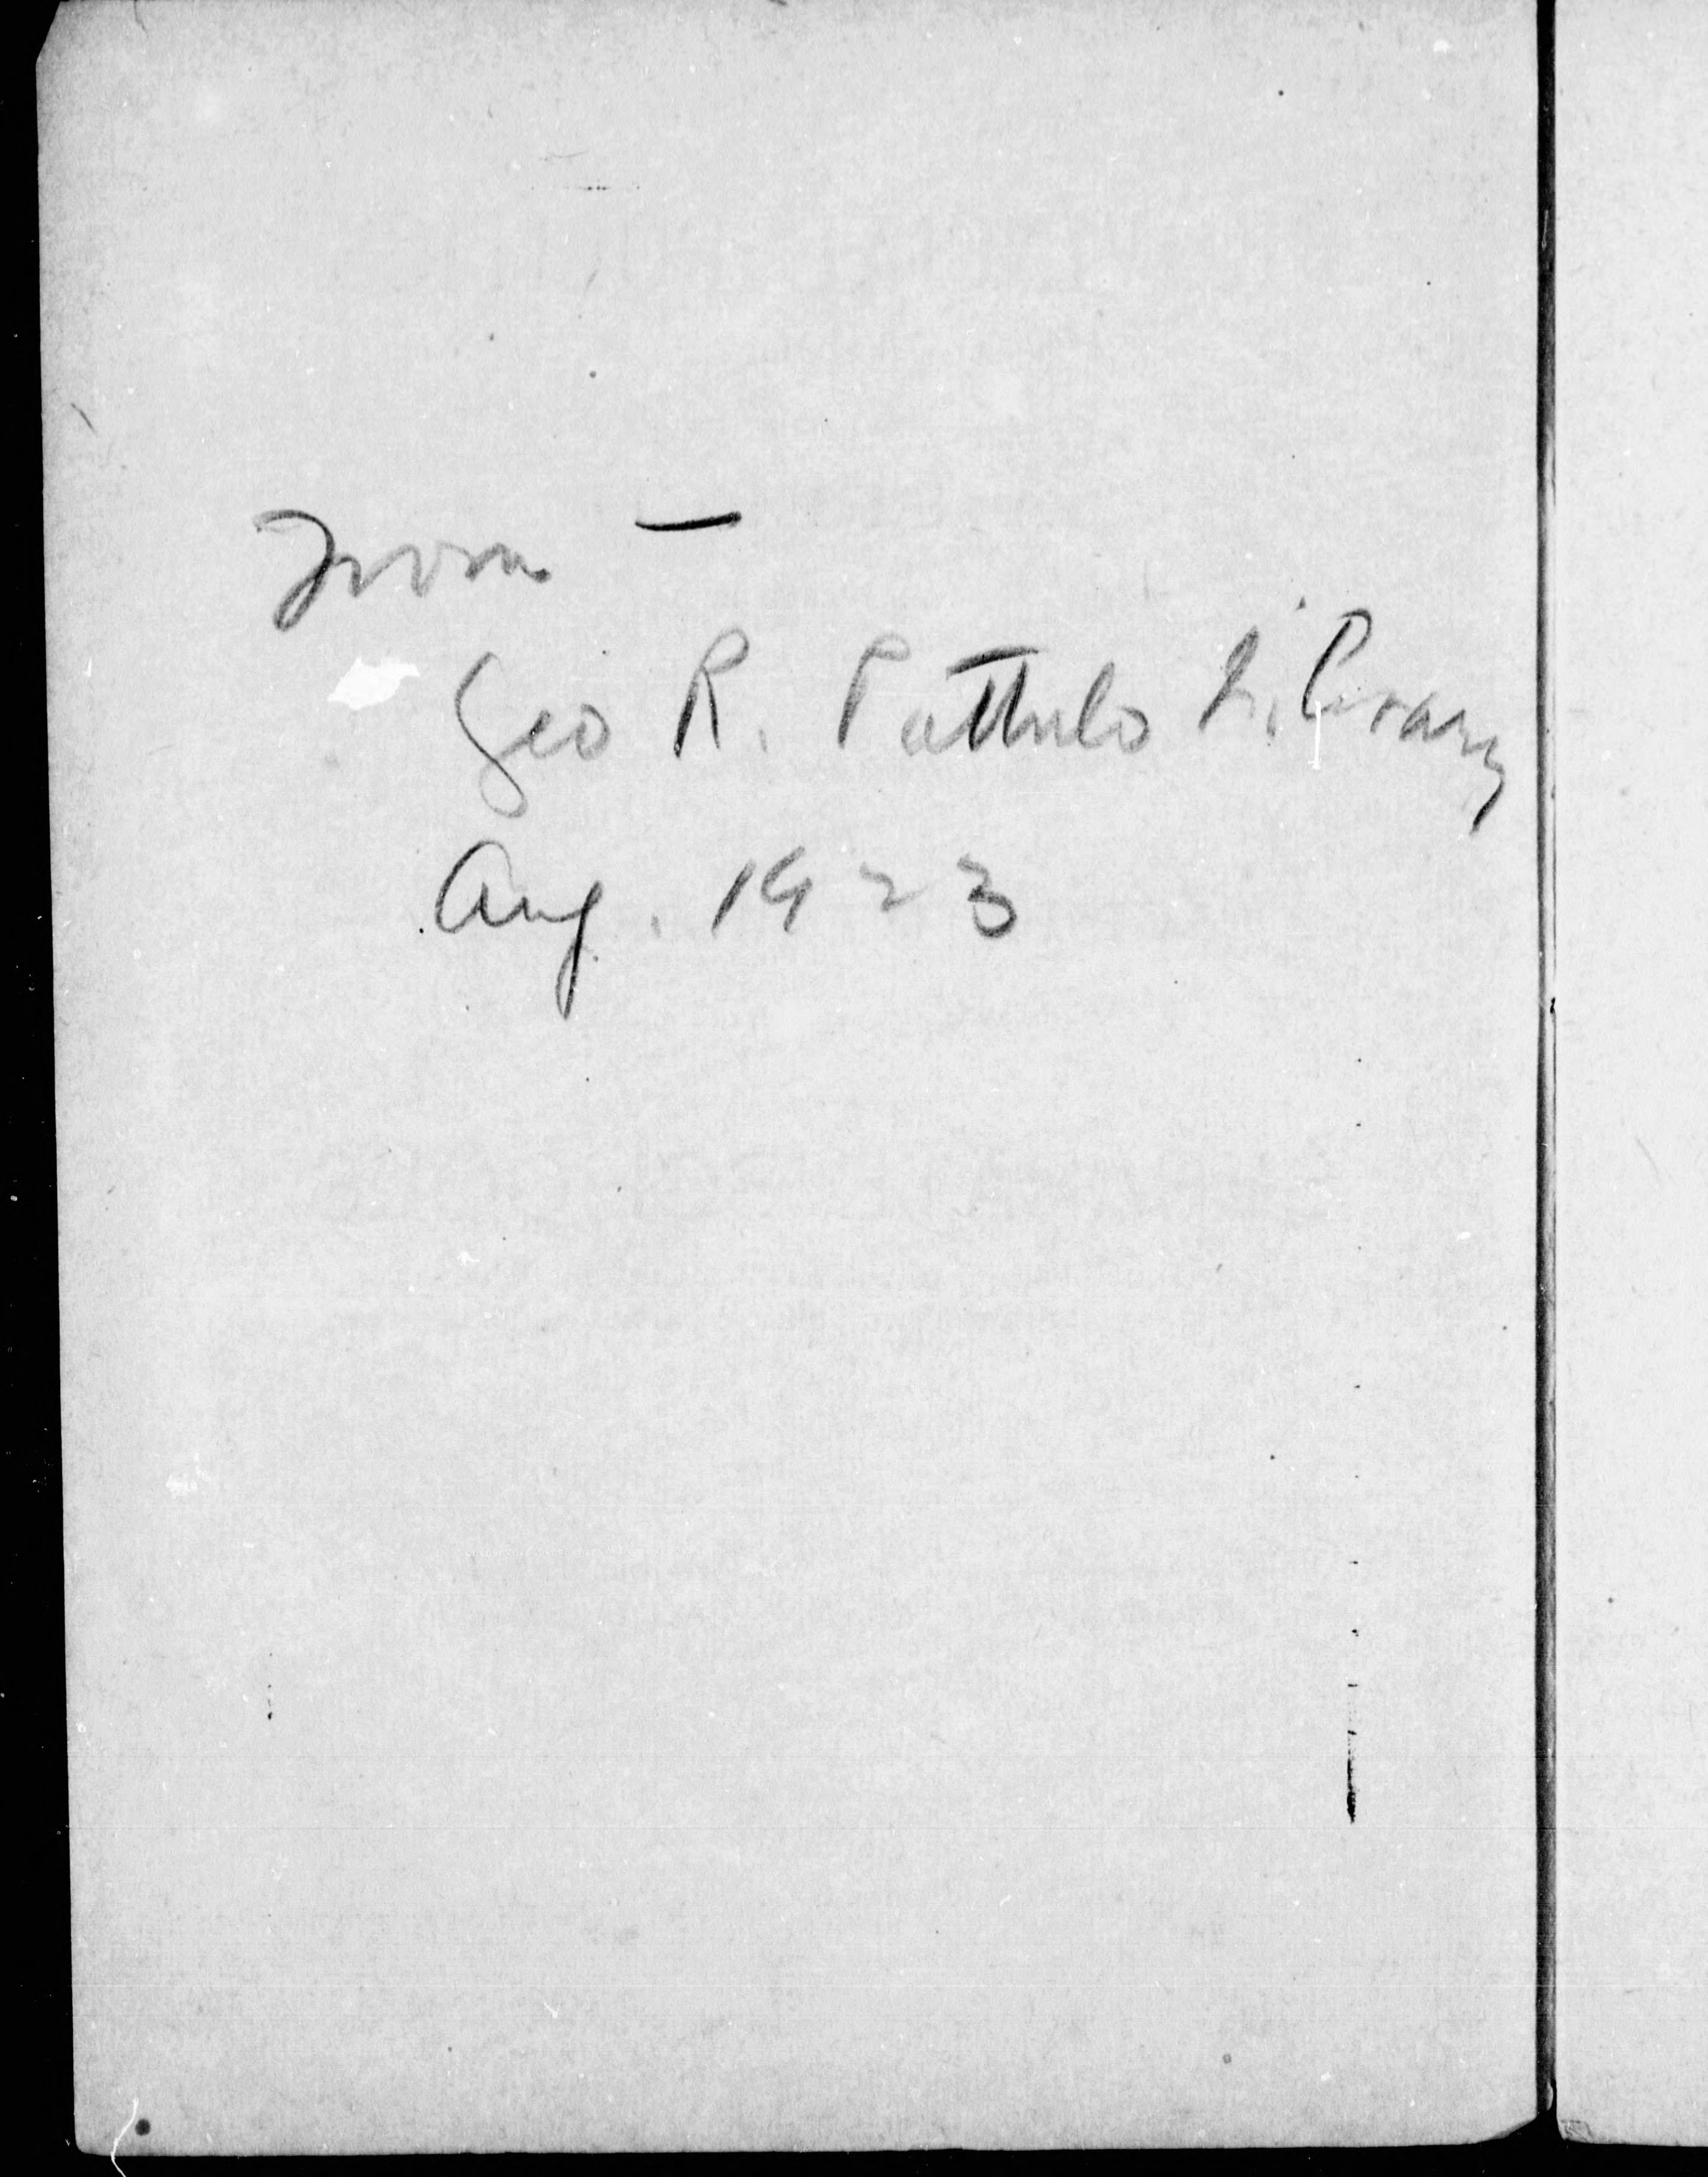 From —
Geo R. Pattulo Library
Aug. 1923